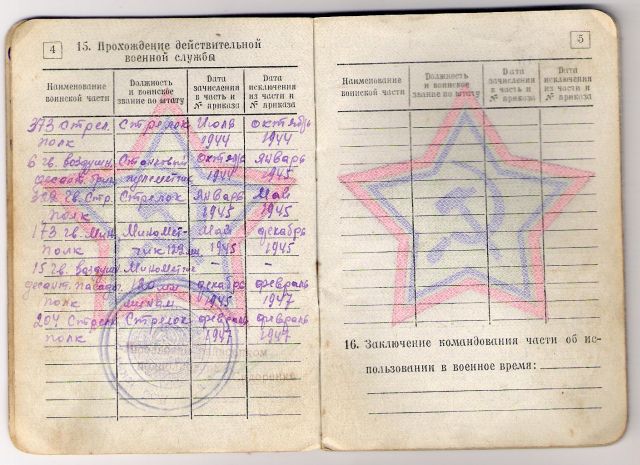 4
15. Прохождение действительной
военной службы
Наименование воинской части
Должность и воинское звание по штату
Дата зачисления в часть и № приказа
Дата исключения из части и № приказа
373 Стрел. Стрелок Июль октябрь
полк 1944 1944
6 гв. воздушн. Станковый октябрь январь
десант. пулеметчик 1944 1945
Стр. Стрелок Январь Май
полк 1945 1945
173 гв. Мин. Миномет- Май декабрь
полк чик 1945 1945
15 гв. воздушн. Минометчик - -
десант. 120 мм декабрь февраль
полк 1945 1947
204 Стрелк. Стрелок февраль февраль
полк 1947 1947
5
Наименование воинской части
Должность и воинское звание по штату
Дата зачисления в часть и № приказа
Дата исключения из части и № приказа
16. Заключение командования части об ис-
пользовании в военное время: